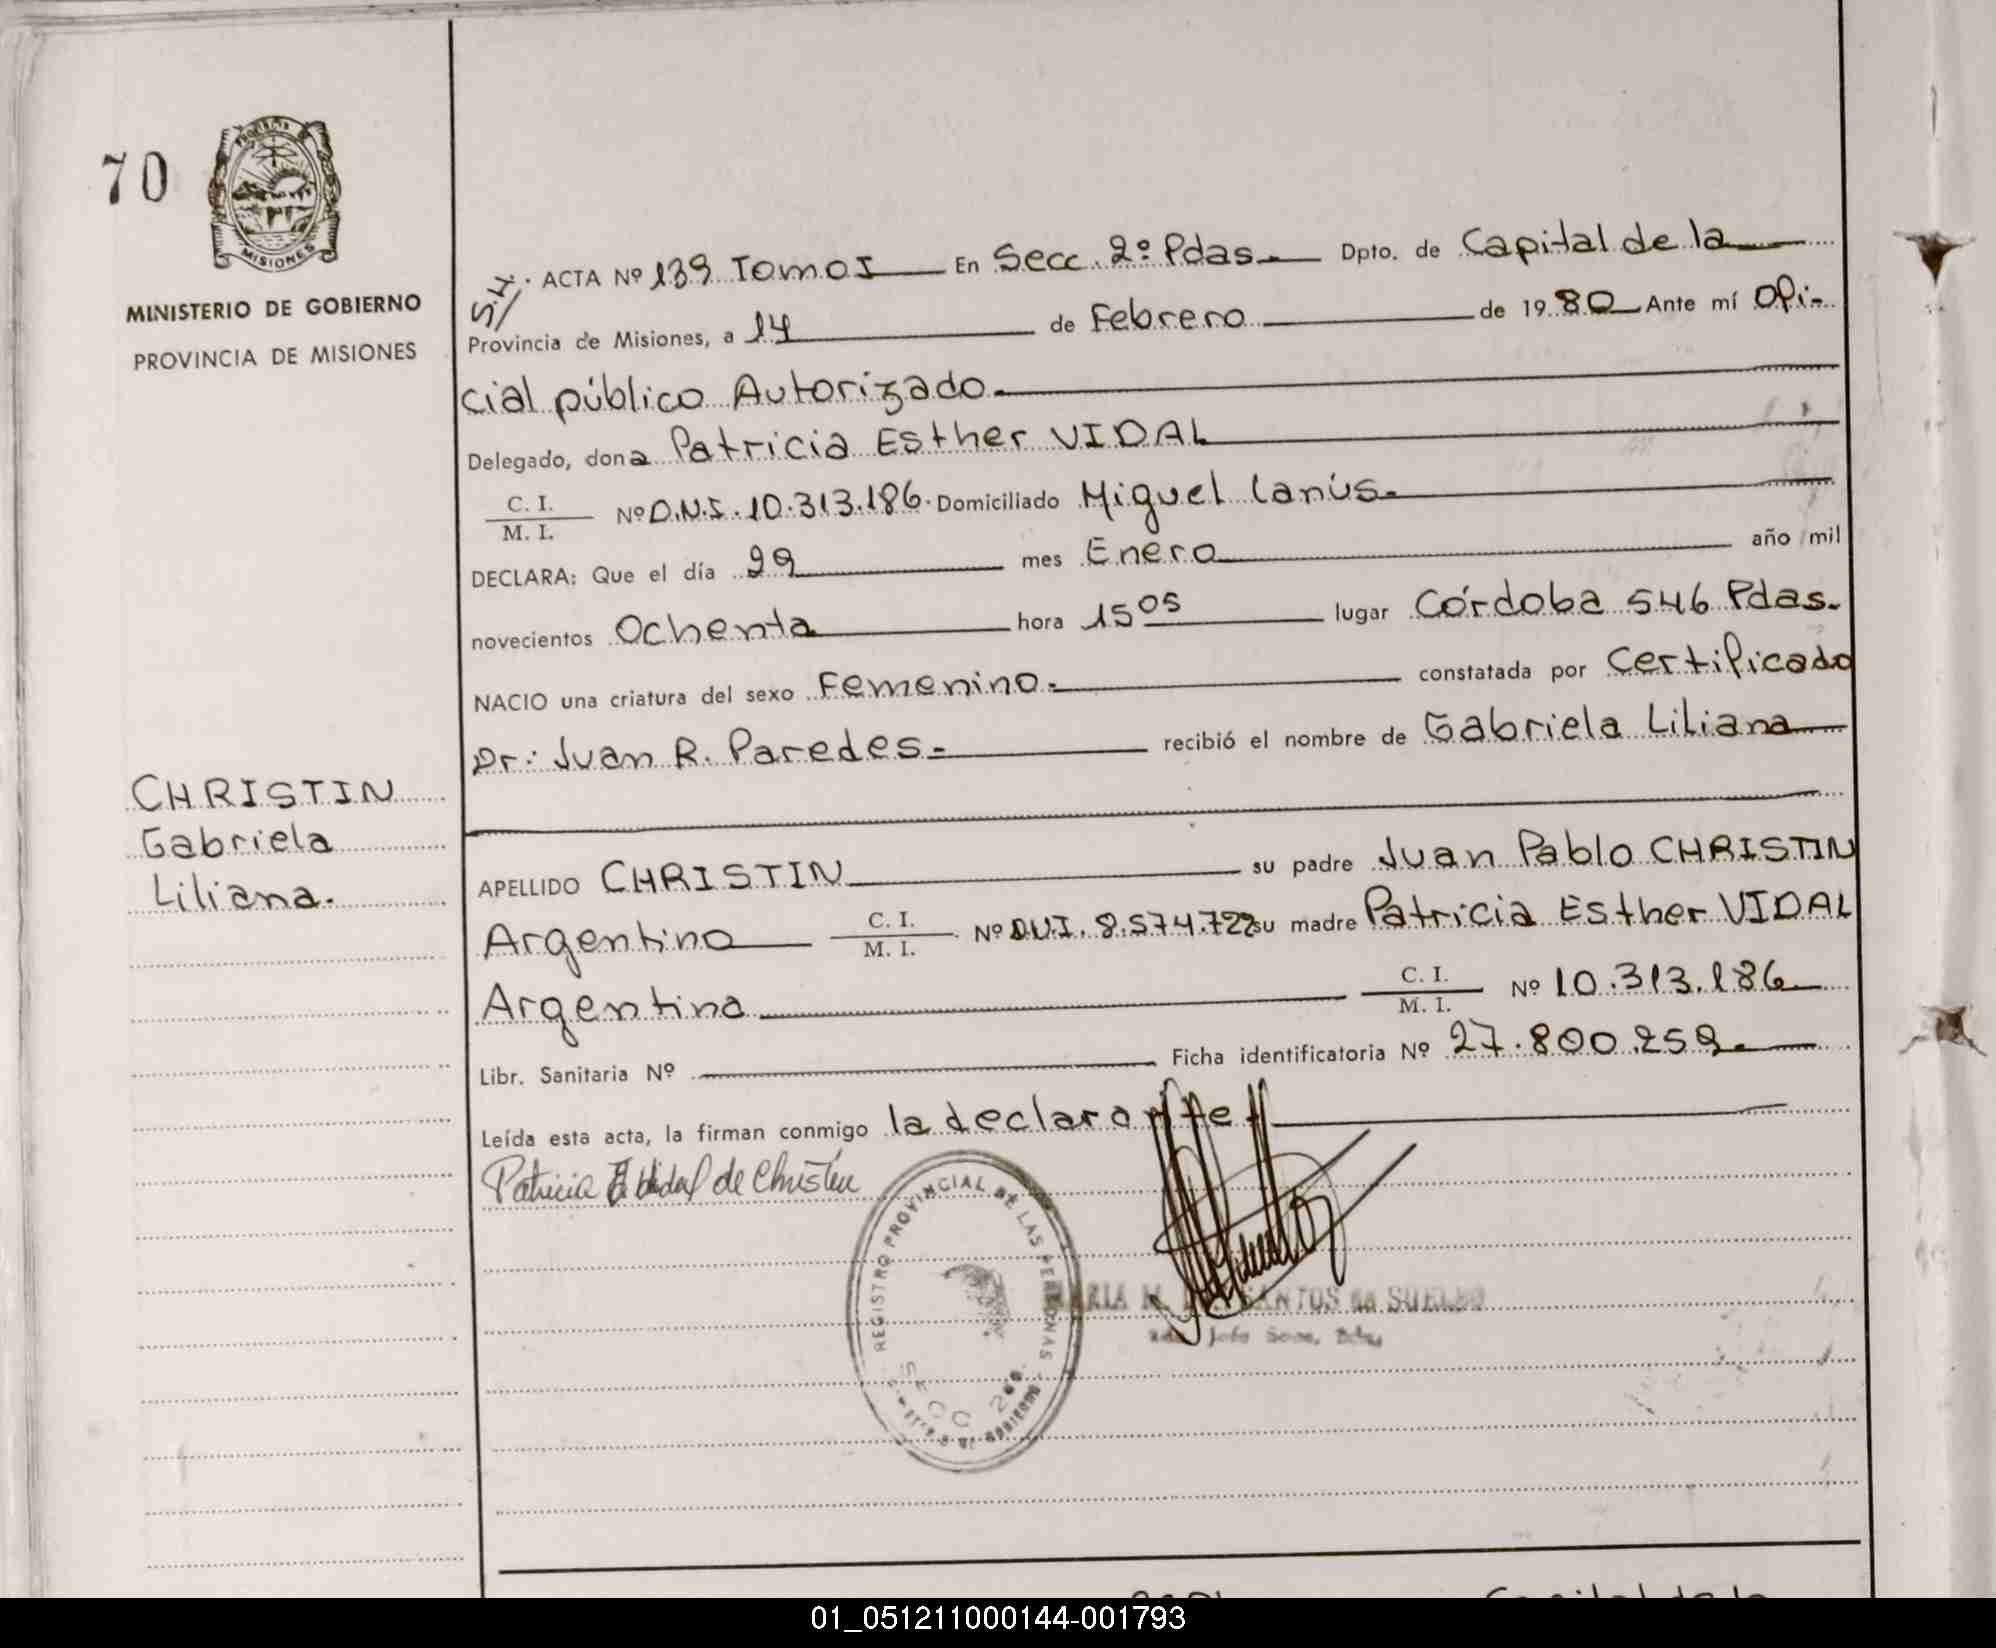 70
PROVINCIA
MISIONES
MINISTERIO DE GOBIERNO
PROVINCIA DE MISIONES
CHRISTIN
Gabriela
Liliana.
ACTA Nº 139 Tomo I En Secc. 2º Pdas. Dpto. de Capital de la
Provincia de Misiones, a 14 de Febrero de 1980 Ante mí Ofi-
cial público Autorizado.
Delegado, dona Patricia Esther VIDAL
C. I.
M. I. Nº D.N.I. 10.313.186. Domiciliado Miguel Lanús.
DECLARA: Que el día 29 mes Enero año mil
novecientos Ochenta hora 15 05 lugar Córdoba 546 Pdas.
NACIO una criatura del sexo Femenino. constatada por Certificado
Dr: Juan R. Paredes. recibió el nombre de Gabriela Liliana
APELLIDO CHRISTIN su padre Juan Pablo CHRISTIN
Argentino C. I.
M. I. Nº D.N.I. 8.574.722 su madre Patricia Esther VIDAL
Argentina C. I.
M. I. Nº 10.313.186
Libr. Sanitaria Nº Ficha identificatoria Nº 27.800.259.
Leída esta acta, la firman conmigo la declarante
Patricia E Vidal de Christin
REGISTRO PROVINCIAL DE LAS PERSONAS
SECC 2
MARIA M. SANTOS de
01_051211000144-001793